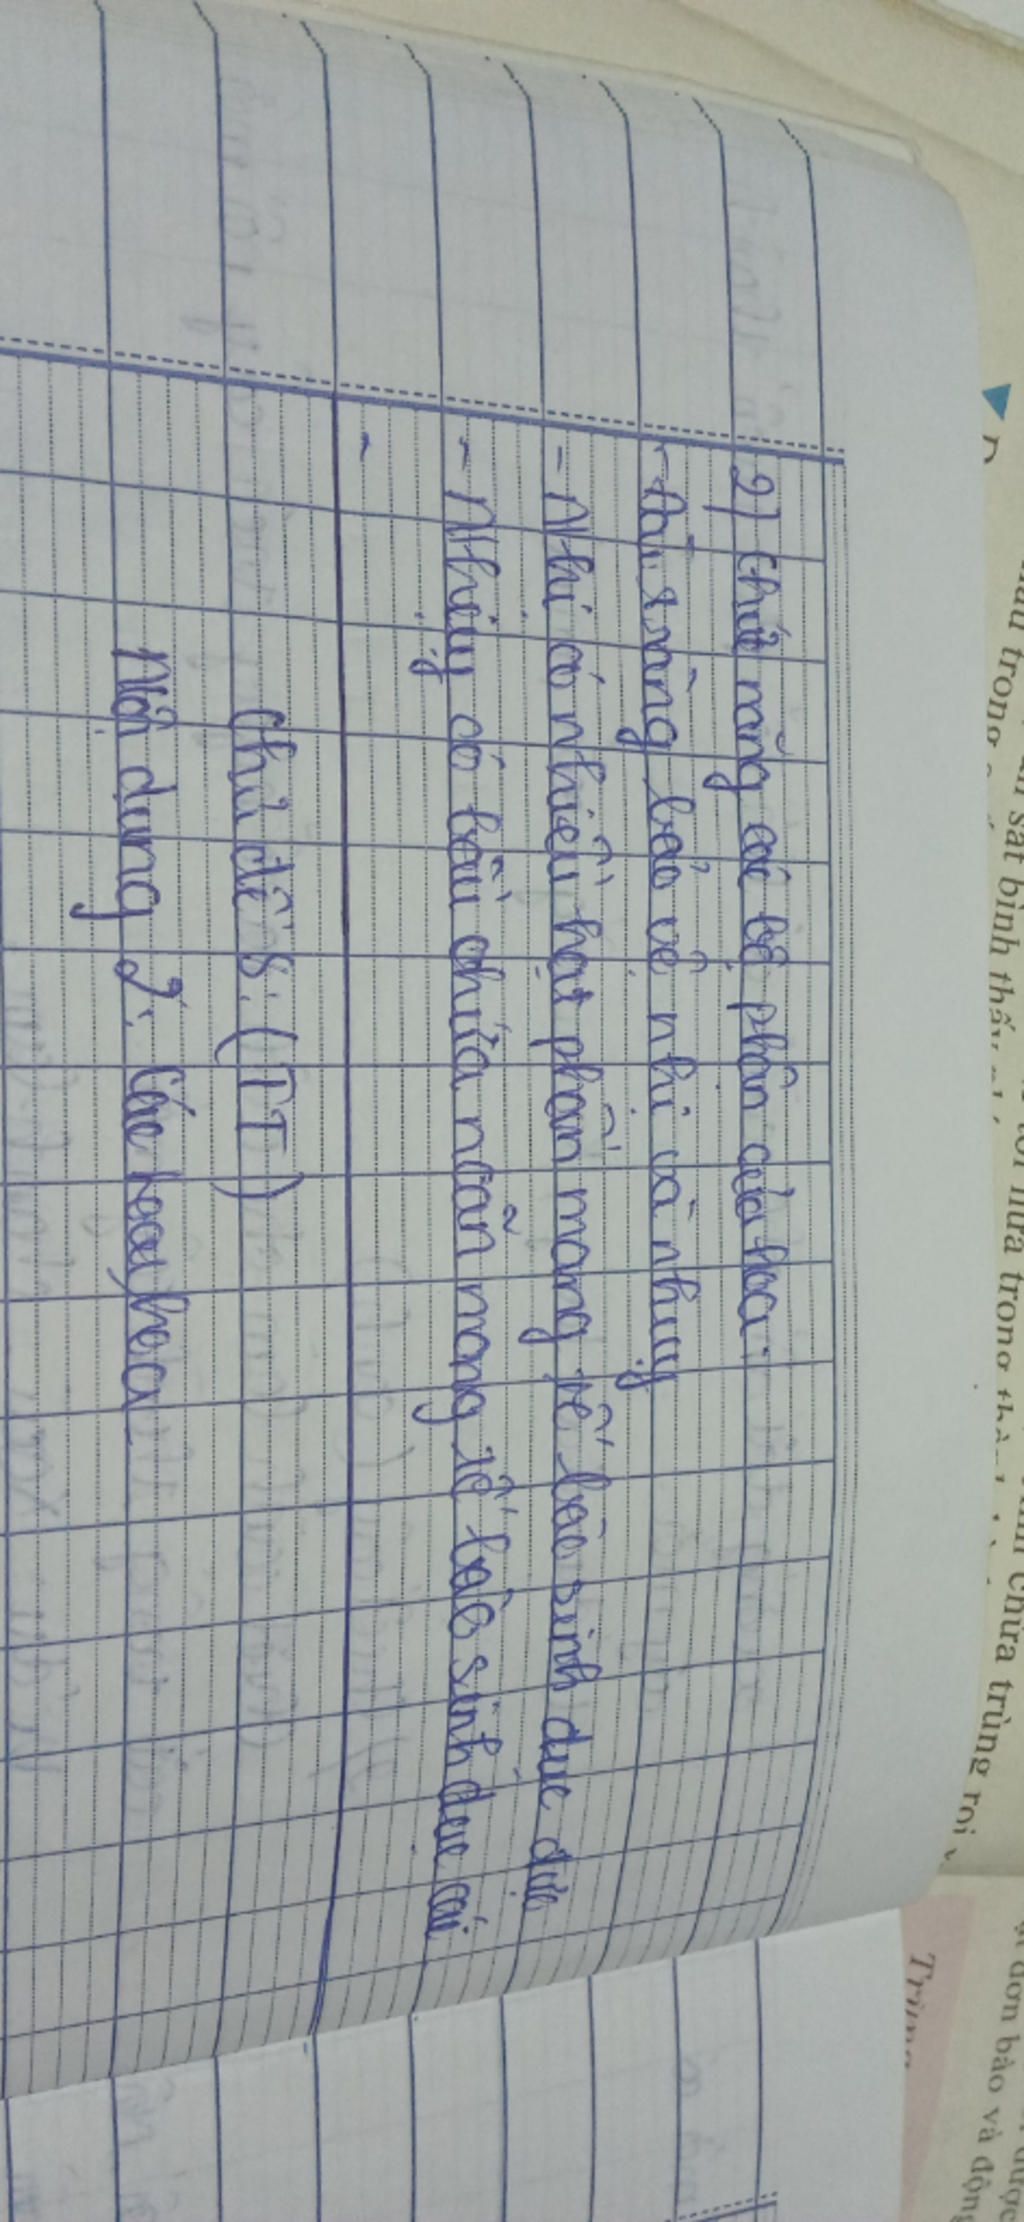 2) Chức năng các bộ phận của hoa:
- Đài, tràng bảo vệ nhị và nhụy
- Nhị có nhiều hạt phấn mang tế bào sinh dục đực
- Nhụy có bầu chứa noãn mang tế bào sinh dục cái
-
Chủ đề 8: (TT)
Nội dung 2: Các loại hoa
trong
sát bình thấy
tới nửa trong
chứa trùng roi
đơn bào và động
Trùng
được